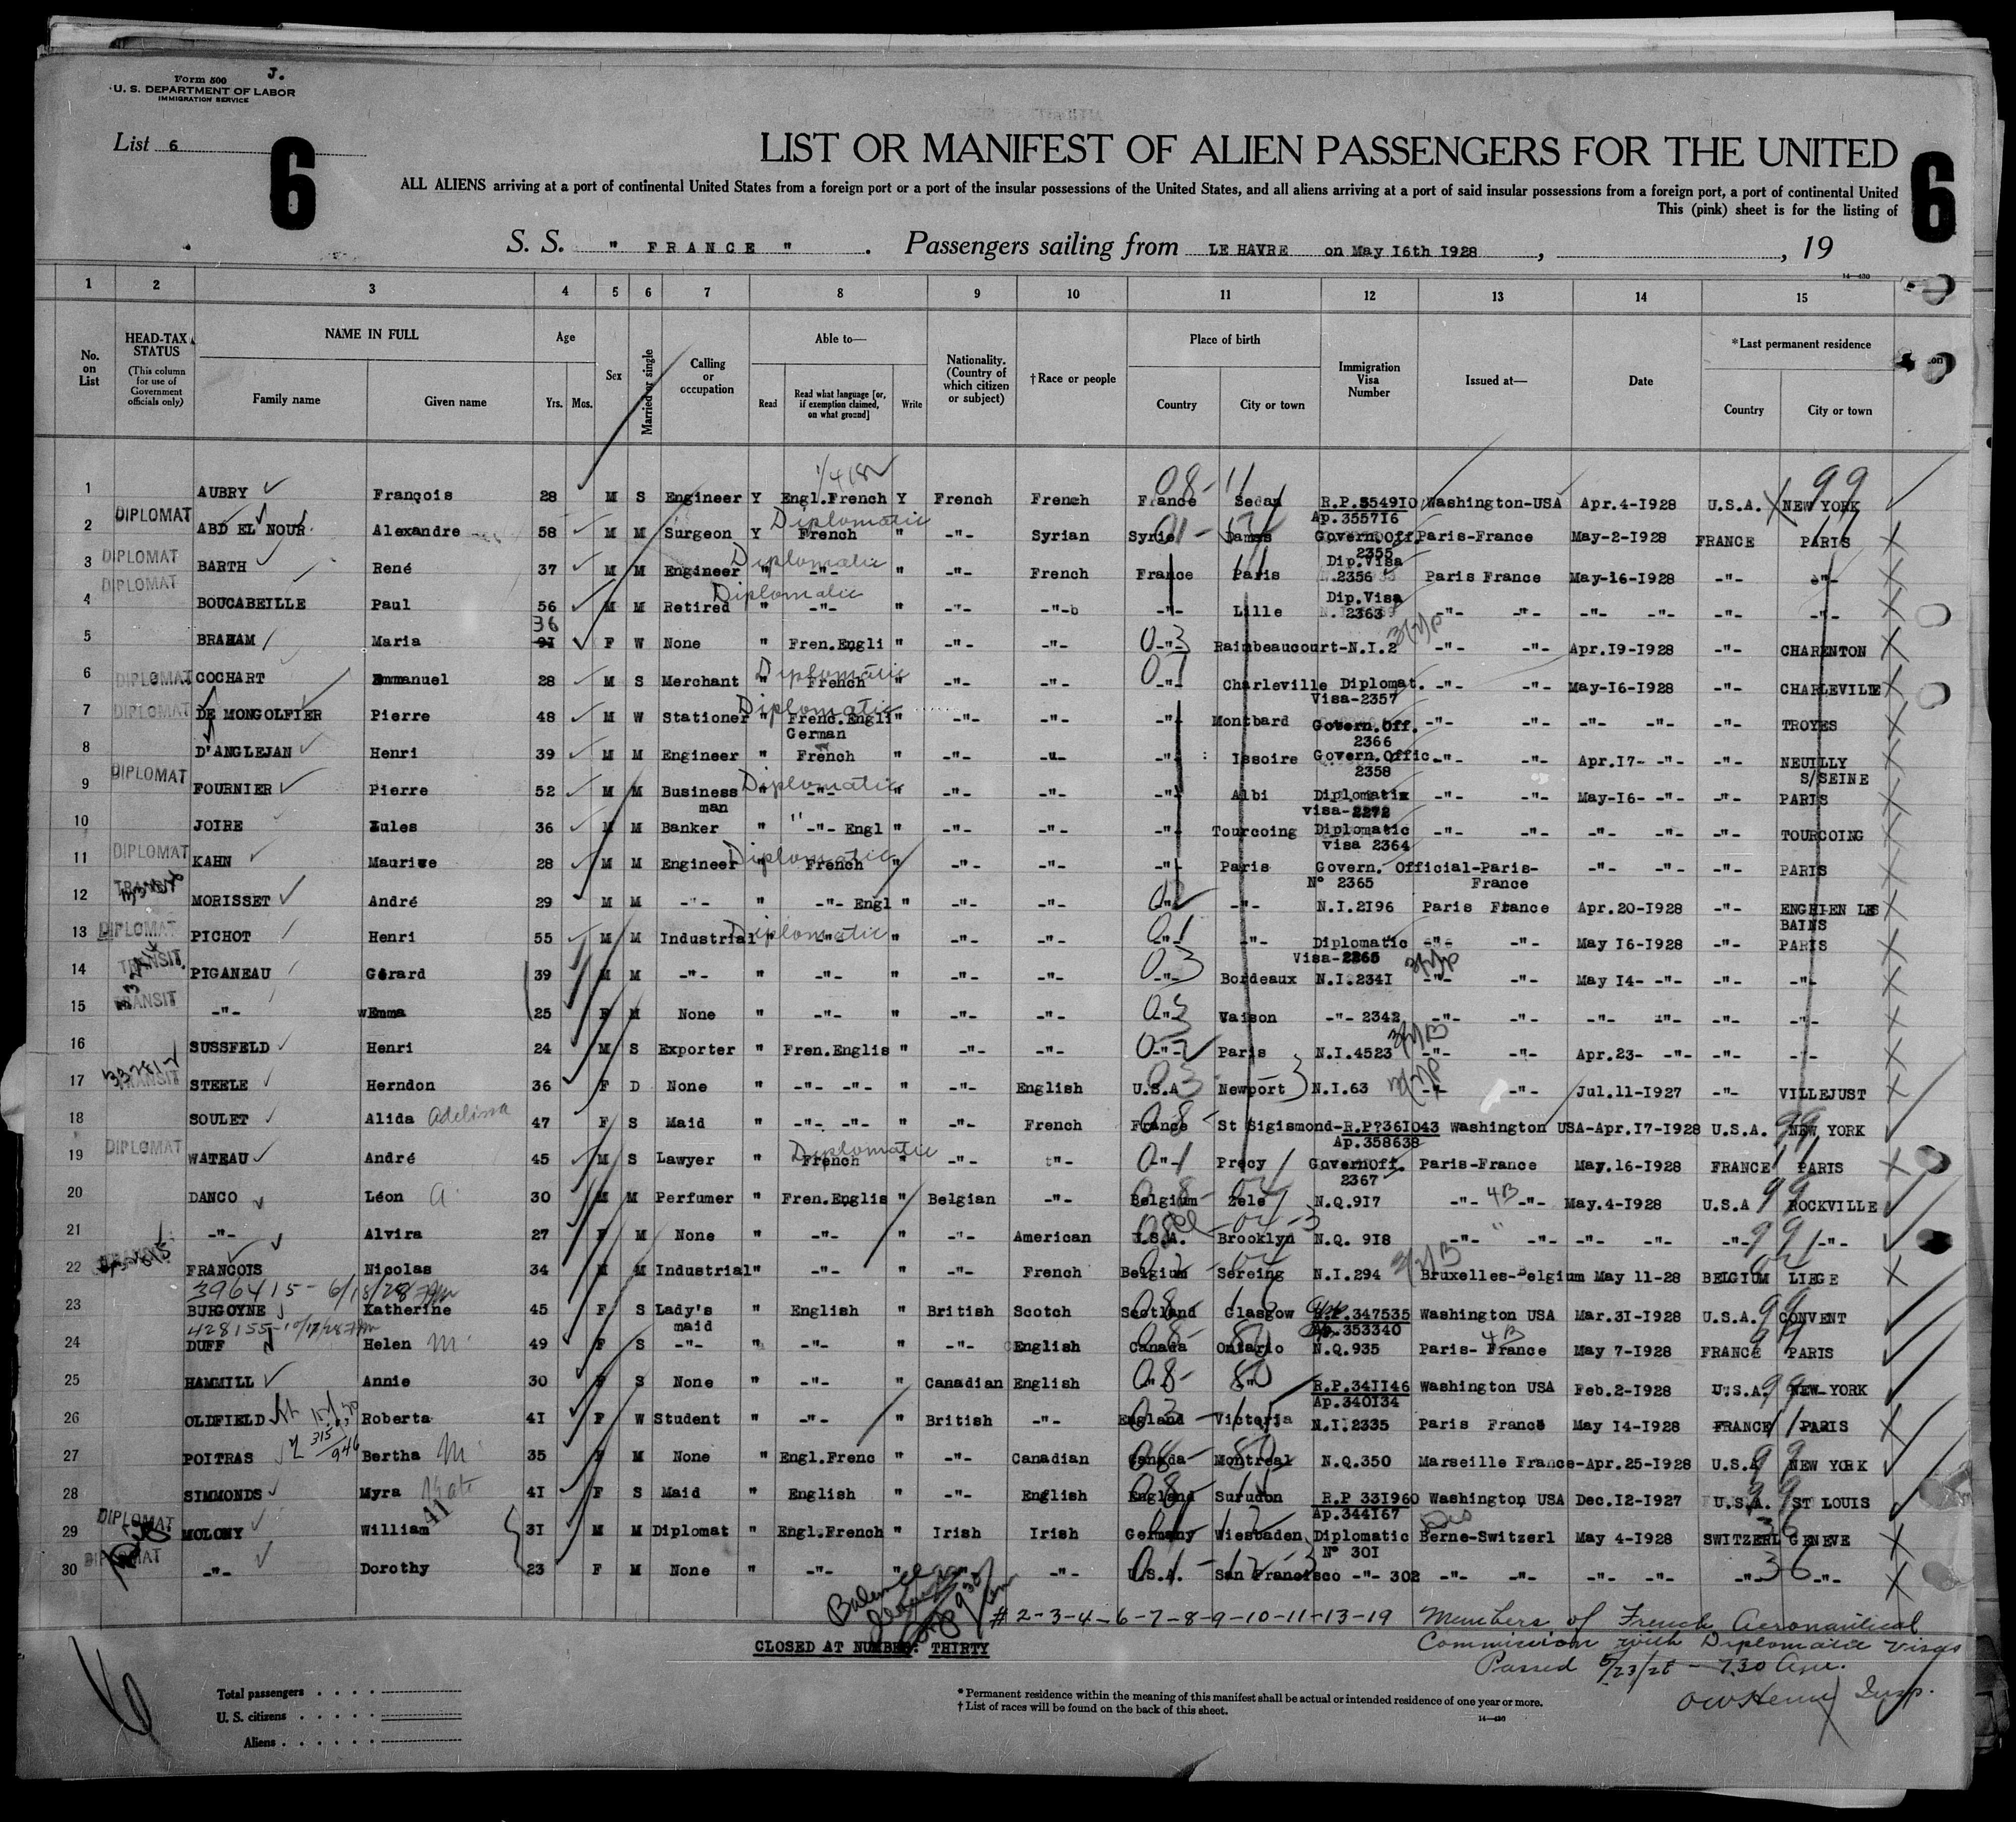 Form 500 J.
U. S. DEPARTMENT OF LABOR
IMMIGRATION SERVICE
List 6
6
LIST OR MANIFEST OF ALIEN PASSENGERS FOR THE UNITED
6
ALL ALIENS arriving at a port of continental United States from a foreign port or a port of the insular possessions of the United States, and all aliens arriving at a port of said insular possessions from a foreign port, a port of continental United
This (pink) sheet is for the listing of
S. S. " FRANCE " . Passengers sailing from LE HAVRE on May 16th 1928 , , 19
14—430
1 2 3 4 5 6 7 8 9 10 11 12 13 14 15
No. on List
HEAD-TAX STATUS (This column for use of Government officials only)
NAME IN FULL Family name Given name
Age Yrs. Mos.
Sex
Married or single
Calling or occupation
Able to— Read Read what language [or, if exemption claimed, on what ground] Write
Nationality. (Country of which citizen or subject)
† Race or people
Place of birth Country City or town
Immigration Visa Number
Issued at—
Date
*Last permanent residence Country City or town
1 AUBRY François 28 M S Engineer Y Engl.French Y French French France Sedan R.P.354910 Washington-USA Apr.4-1928 U.S.A. NEW YORK 99
Ap.355716
2 DIPLOMAT ABD EL NOUR Alexandre 58 M M Surgeon Y French " -"- Syrian Syrie Damas Govern.Off. Paris-France May-2-1928 FRANCE PARIS
Diplomatic 2355
3 DIPLOMAT BARTH René 37 M M Engineer " -"- " -"- French France Paris Dip.Visa 2356 Paris France May-16-1928 -"- -"-
Diplomatic
4 DIPLOMAT BOUCABEILLE Paul 56 M M Retired " -"- " -"- -"- -"- Lille Dip.Visa 2363 -"- -"- -"- -"- -"- -"-
Diplomatic
5 BRAHAM Maria 36 F W None " Fren.Engli " -"- -"- -"- Raimbeaucourt-N.I.2 -"- -"- Apr.19-1928 -"- CHARENTON
6 DIPLOMAT COCHART Emmanuel 28 M S Merchant " French " -"- -"- -"- Charleville Diplomat. -"- -"- May-16-1928 -"- CHARLEVILLE
Diplomatic Visa-2357
7 DIPLOMAT DE MONGOLFIER Pierre 48 M W Stationer " Frenc.Engli " -"- -"- -"- Montbard Govern.Off. -"- -"- -"- -"- -"- TROYES
Diplomatic German 2366
8 D'ANGLEJAN Henri 39 M M Engineer " French " -"- -"- -"- Issoire Govern.Offic -"- -"- Apr.17- -"- -"- NEUILLY
2358 S/SEINE
9 DIPLOMAT FOURNIER Pierre 52 M M Business " -"- " -"- -"- -"- Albi Diplomatic -"- -"- May-16- -"- -"- PARIS
Diplomatic man visa-2272
10 JOIRE Jules 36 M M Banker " -"- Engl " -"- -"- -"- Tourcoing Diplomatic -"- -"- -"- -"- -"- TOURCOING
visa 2364
11 DIPLOMAT KAHN Maurice 28 M M Engineer " French " -"- -"- -"- Paris Govern. Official-Paris- -"- -"- -"- PARIS
Diplomatic N° 2365 France
12 TRANSIT MORISSET André 29 M M -"- " -"- Engl " -"- -"- -"- -"- N.I.2196 Paris France Apr.20-1928 -"- ENGHIEN LES
BAINS
13 DIPLOMAT PICHOT Henri 55 M M Industrial " -"- " -"- -"- -"- -"- Diplomatic -"- -"- May 16-1928 -"- PARIS
Diplomatic Visa-2265
14 TRANSIT PIGANEAU Gérard 39 M M -"- " -"- " -"- -"- -"- Bordeaux N.I.2341 -"- -"- May 14- -"- -"- -"-
15 TRANSIT -"- wEmma 25 F M None " -"- " -"- -"- -"- Vaison -"- 2342 -"- -"- -"- -"- -"- -"-
16 SUSSFELD Henri 24 M S Exporter " Fren.Englis " -"- -"- -"- Paris N.I.4523 -"- -"- Apr.23- -"- -"- -"-
17 TRANSIT STEELE Herndon 36 F D None " -"- -"- " -"- English U.S.A Newport N.I.63 -"- -"- Jul.11-1927 -"- VILLEJUST
18 SOULET Alida Adelina 47 F S Maid " -"- -"- " -"- French France St Sigismond-R.P?361043 Washington USA-Apr.17-1928 U.S.A. NEW YORK
Ap.358638
19 DIPLOMAT WATEAU André 45 M S Lawyer " French " -"- -"- -"- Precy GovernOff. Paris-France May.16-1928 FRANCE PARIS
Diplomatic 2367
20 DANCO Léon a. 30 M M Perfumer " Fren.Englis " Belgian -"- Belgium Zele N.Q.917 -"- 4B -"- May.4-1928 U.S.A ROCKVILLE
21 -"- Alvira 27 F M None " -"- " -"- American U.S.A. Brooklyn N.Q. 918 -"- -"- -"- -"- -"- -"-
22 FRANCOIS Nicolas 34 M M Industrial " -"- " -"- French Belgium Sereing N.I.294 Bruxelles-Belgium May 11-28 BELGIUM LIEGE
396415 - 6/18/28
23 BURGOYNE Katherine 45 F S Lady's maid " English " British Scotch Scotland Glasgow R.P.347535 Washington USA Mar.31-1928 U.S.A. CONVENT
428155 Ap.353340
24 DUFF Helen M. 49 F S -"- " -"- " -"- English Canada Ontario N.Q.935 Paris- France 4B May 7-1928 FRANCE PARIS
25 HAMMILL Annie 30 F S None " -"- " Canadian English -"- -"- R.P.341146 Washington USA Feb.2-1928 U.S.A. NEW-YORK
Ap.340134
26 OLDFIELD Roberta 41 F W Student " -"- " British -"- England Victoria N.I.2335 Paris France May 14-1928 FRANCE PARIS
27 POITRAS Bertha M. 35 F M None " Engl.Frenc " -"- Canadian Canada Montreal N.Q.350 Marseille France-Apr.25-1928 U.S.A NEW YORK
28 SIMMONDS Myra Kate 41 F S Maid " English " -"- English England Surudon R.P 331960 Washington USA Dec.12-1927 U.S.A. ST LOUIS
Ap.344167
29 DIPLOMAT MOLONY William 31 M M Diplomat " Engl.French " Irish Irish Germany Wiesbaden Diplomatic Berne-Switzerl May 4-1928 SWITZERL GENEVE
N° 301
30 DIPLOMAT -"- Dorothy 23 F M None " -"- " -"- -"- U.S.A. San Francisco -"- 302 -"- -"- -"- -"- -"- -"-
# 2-3-4-6-7-8-9-10-11-13-19 Members of French Aeronautical
Commission with Diplomatic Visas
CLOSED AT NUMBER: THIRTY
Passed 5/23/28 - 730 am.
OW Henry Insp.
Total passengers . . . .
U. S. citizens . . . . .
Aliens . . . . . .
* Permanent residence within the meaning of this manifest shall be actual or intended residence of one year or more.
† List of races will be found on the back of this sheet.
14—430